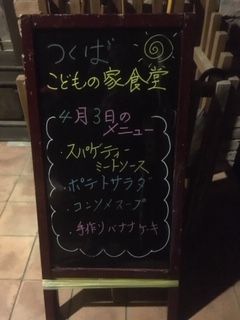 つくば
こどもの家食堂
4月3日の
メニュー
・スパゲティー
ミートソース
・ポテトサラダ
・コンソメスープ
・手作りバナナケーキ